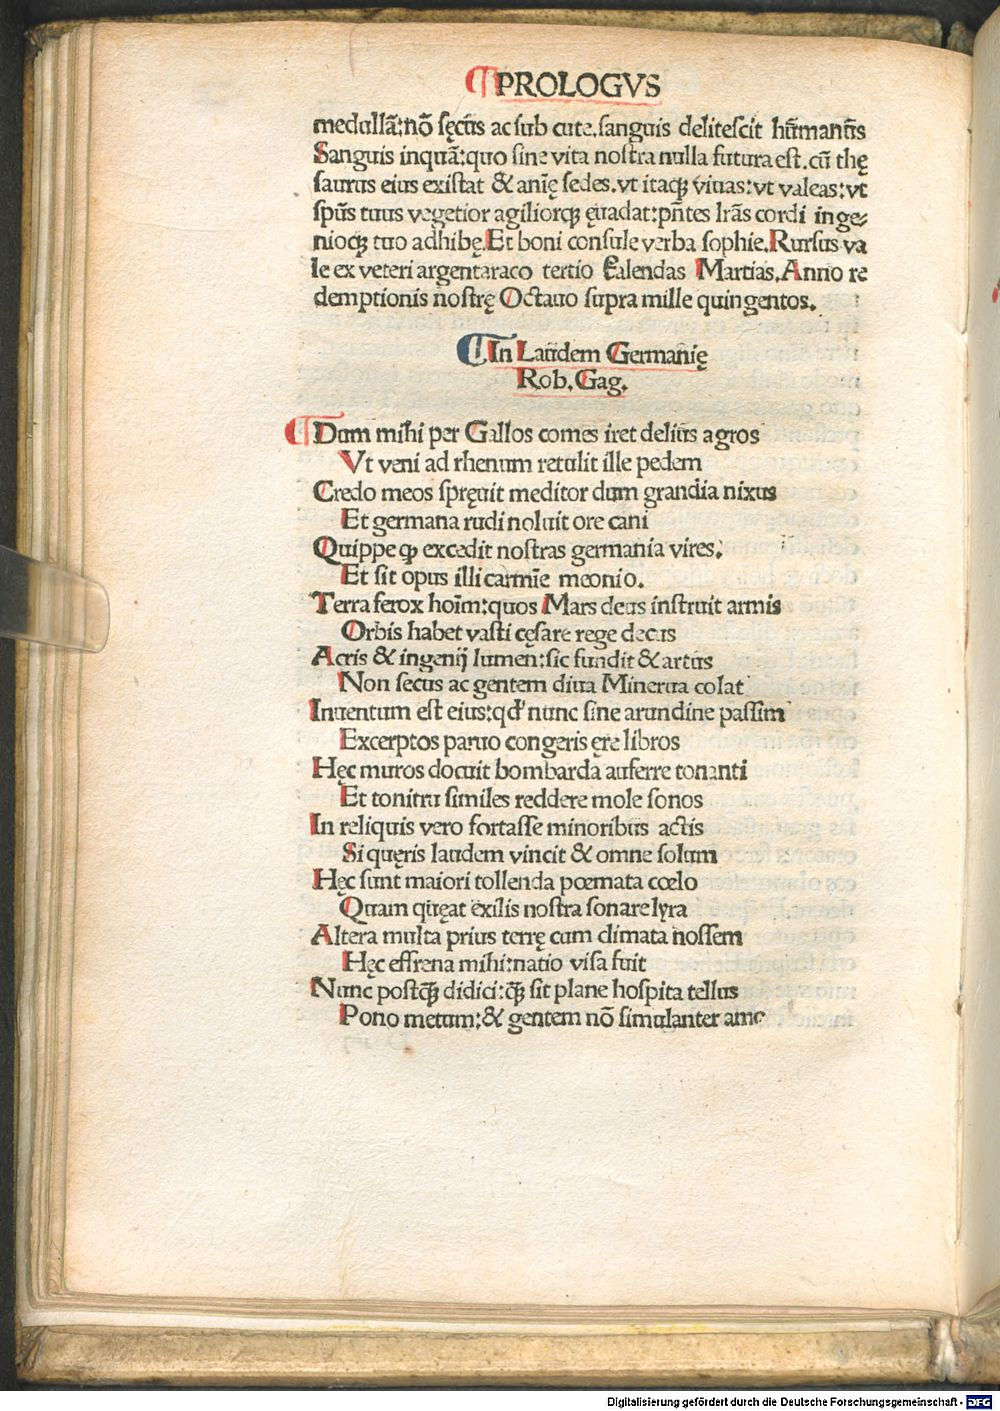 PROLOGVS
medullã:nõ sęcus ac sub cute.sanguis delitescit hũmanus
Sanguis inquã:quo sine vita nostra nulla futura est.cũ thę
saurus eius existat & anię sedes.vt itaqꝫ viuas:vt valeas:vt
spũs tuus vegetior agiliorqꝫ ęuadat:pñtes lr̃as cordi inge-
nioqꝫ tuo adhibę.Et boni consule verba sophie.Rursus va
le ex veteri argentaraco tertio Kalendas Martias.Anno re
demptionis nostrę Octauo supra mille quingentos.
In Laudem Germanię
Rob.Gag.
Dum mihi per Gallos comes iret delius agros
Vt veni ad rhenum retulit ille pedem
Credo meos spręuit meditor dum grandia nixus
Et germana rudi noluit ore cani
Quippe ꝙ excedit nostras germania vires.
Et sit opus illi carmĩe meonio.
Terra ferox hoĩm:quos Mars deus instruit armis
Orbis habet vasti cęsare rege decus
Acris & ingenij lumen:sic fundit & artus
Non secus ac gentem diua Minerua colat
Inuentum est eius:qd' nunc sine arundine passim
Excerptos paruo congeris ęre libros
Hęc muros docuit bombarda auferre tonanti
Et tonitru similes reddere mole sonos
In reliquis vero fortasse minoribus actis
Si quęris laudem vincit & omne solum
Hęc sunt maiori tollenda pœmata cœlo
Quam quęat exilis nostra sonare lyra
Altera multa prius terrę cum climata nossem
Hęc effrena mihi:natio visa fuit
Nunc postqꝫ didici:qꝫ sit plane hospita tellus
Pono metum:& gentem nõ simulanter amo
Digitalisierung gefördert durch die Deutsche Forschungsgemeinschaft - DFG